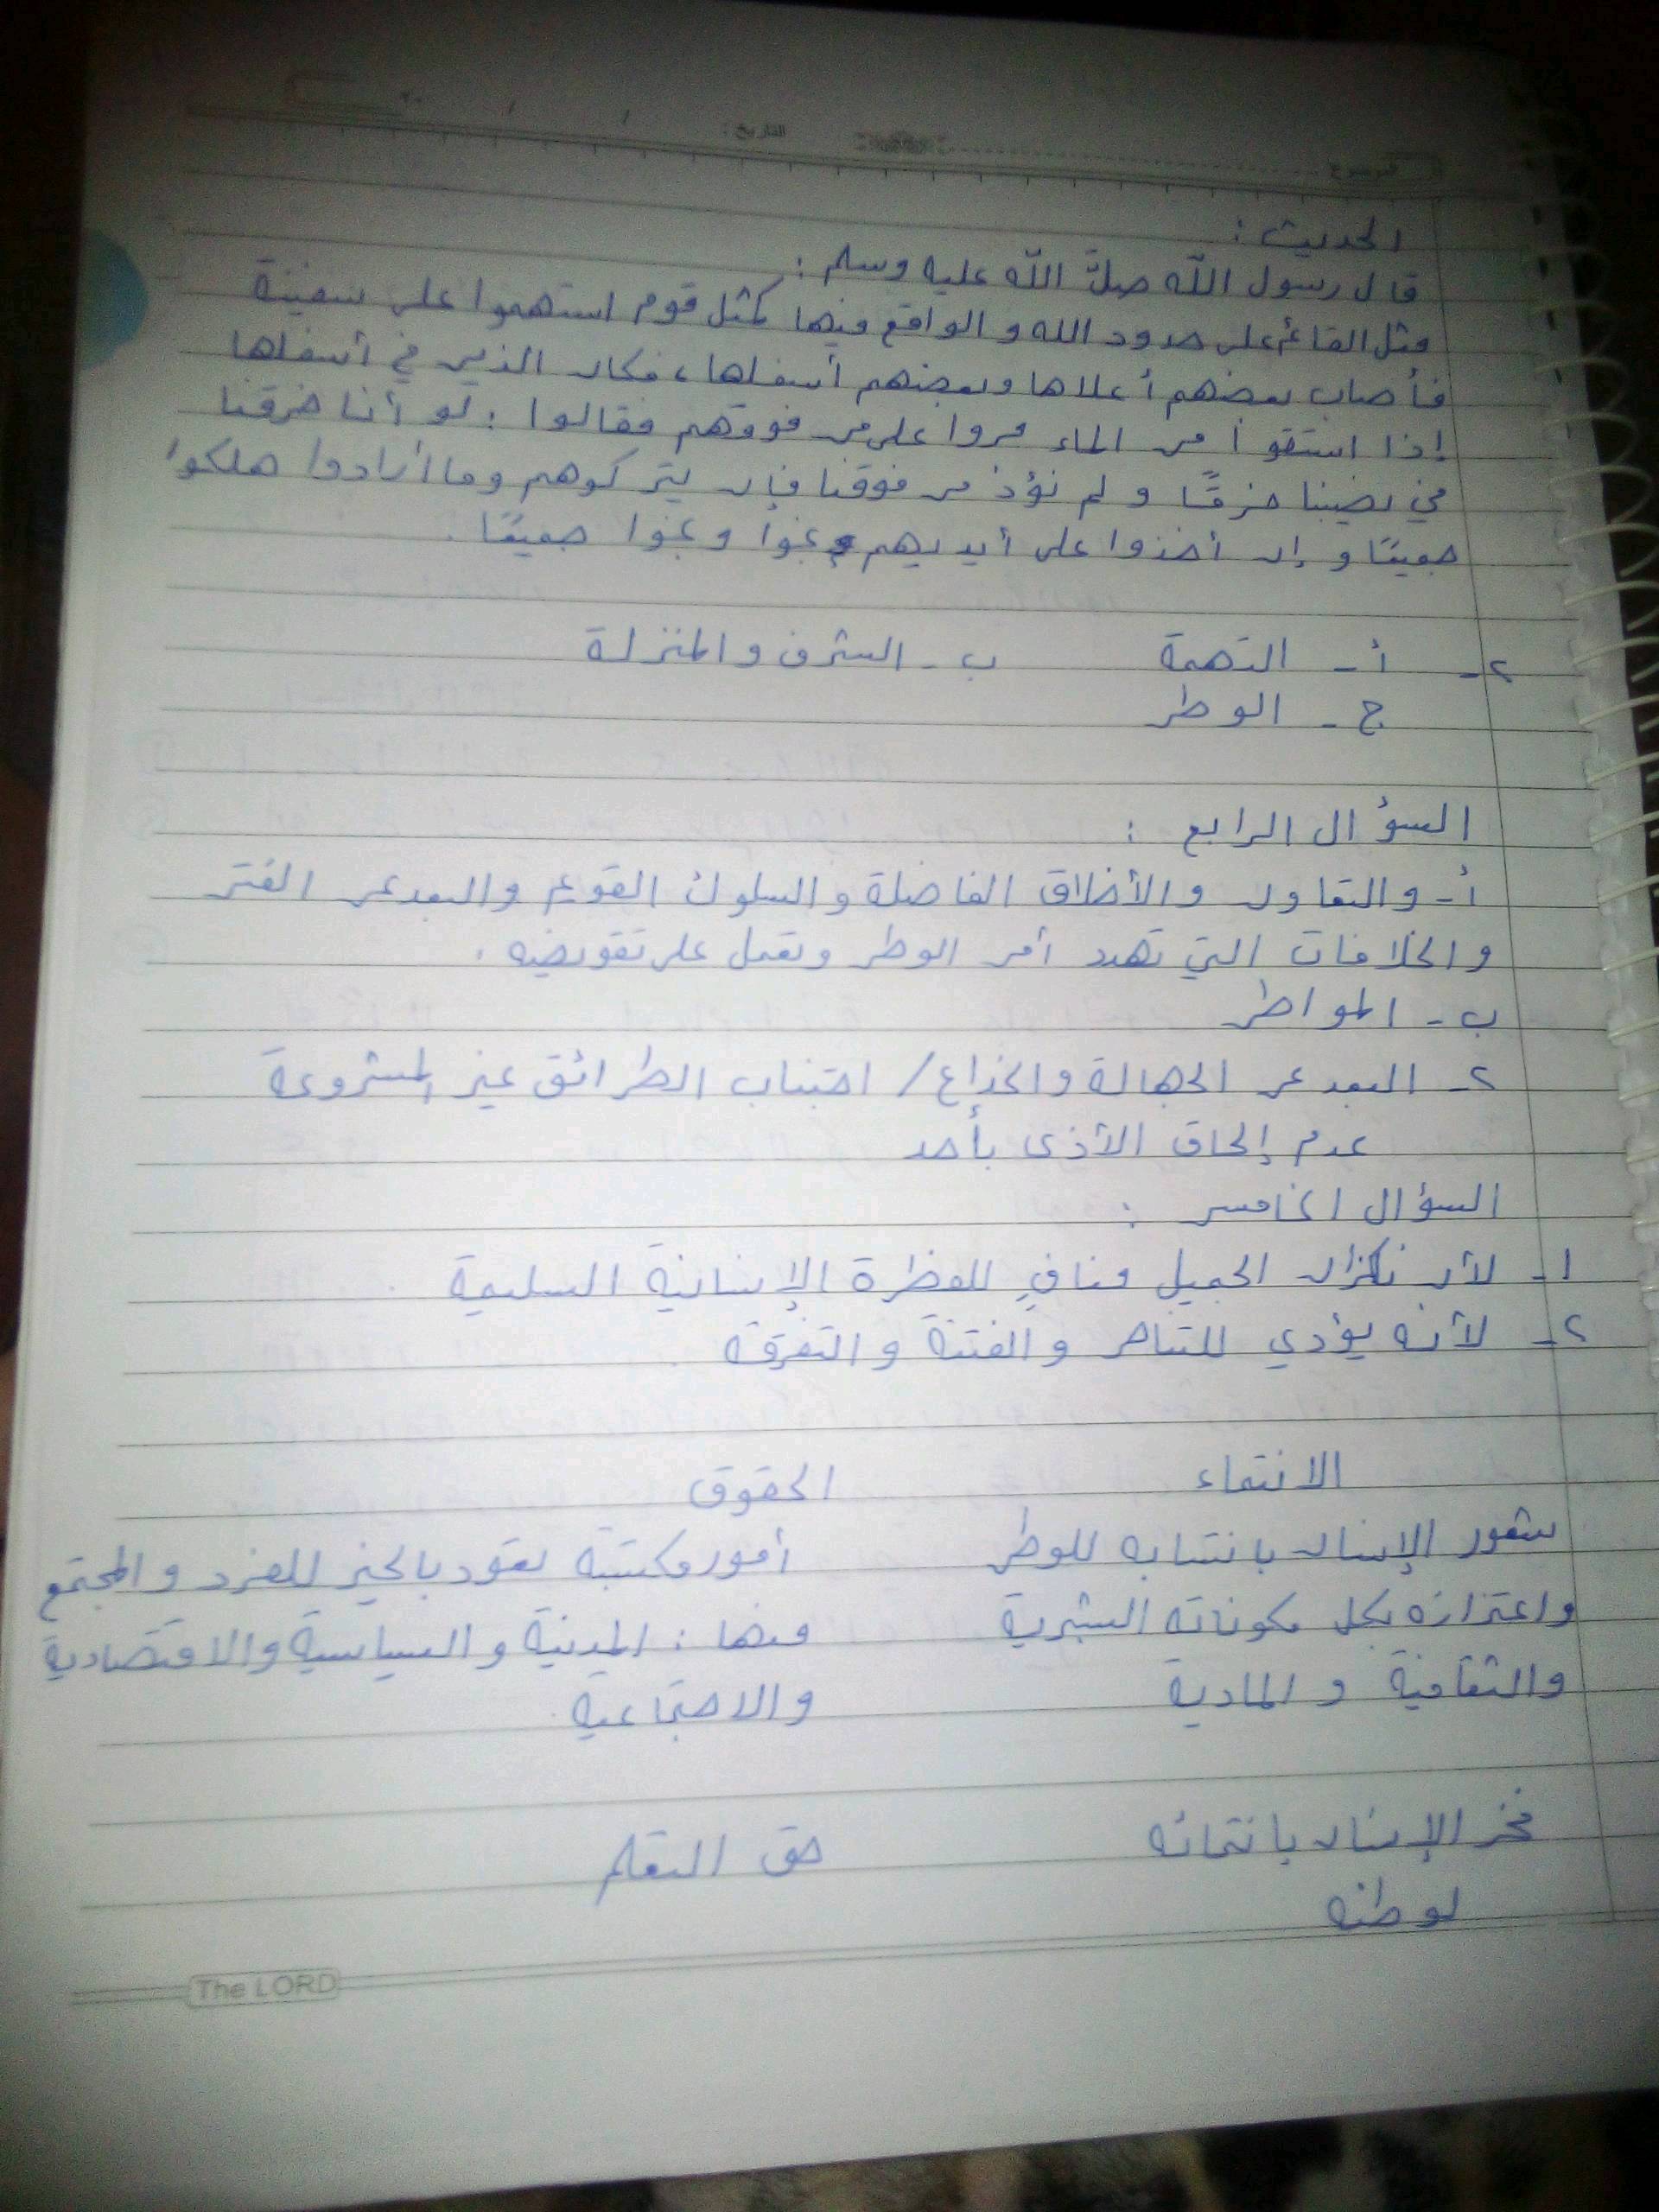 الموضوع التاريخ : / / ٢٠
الحديث :
قال رسول الله صلَّ الله عليه وسلم :
مثل القائم على حدود الله و الواقع فيها كمثل قوم استهموا على سفينة
فأصاب بعضهم أعلاها وبعضهم أسفلها، فكان الذين في أسفلها
إذا استقوا من الماء مروا على من فوقهم فقالوا : لو أنا خرقنا
في نصيبنا خرقًا و لم نؤذ من فوقنا فإن يتركوهم وما أرادوا هلكوا
جميعًا و إن أخذوا على أيديهم نجوا و نجوا جميعًا .
٢- أ - التهمة ب - الشرف و المنزلة
ج - الوطن
السؤال الرابع :
أ - و التعاون و الأخلاق الفاضلة و السلوك القويم و البعد عن الفتن
و الخلافات التي تهدد أمن الوطن و تعمل على تقويضه .
ب - المواطن
٢- البعد عن الجهالة و الخداع / اجتناب الطرائق غير المشروعة
عدم إلحاق الأذى بأحد
السؤال الخامس :
١- لأن نكران الجميل منافٍ للفطرة الإنسانية السليمة .
٢- لأنه يؤدي للتناحر و الفتنة و التفرقة .
الانتماء الحقوق
شعور الإنسان بانتسابه للوطن أمور مكتسبة تعود بالخير للفرد و المجتمع
و اعتزازه بكل مكوناته البشرية منها : المدنية و السياسية و الاقتصادية
و الثقافية و المادية و الاجتماعية .
فخر الإنسان بانتمائه حق التعلم
لوطنه
The LORD